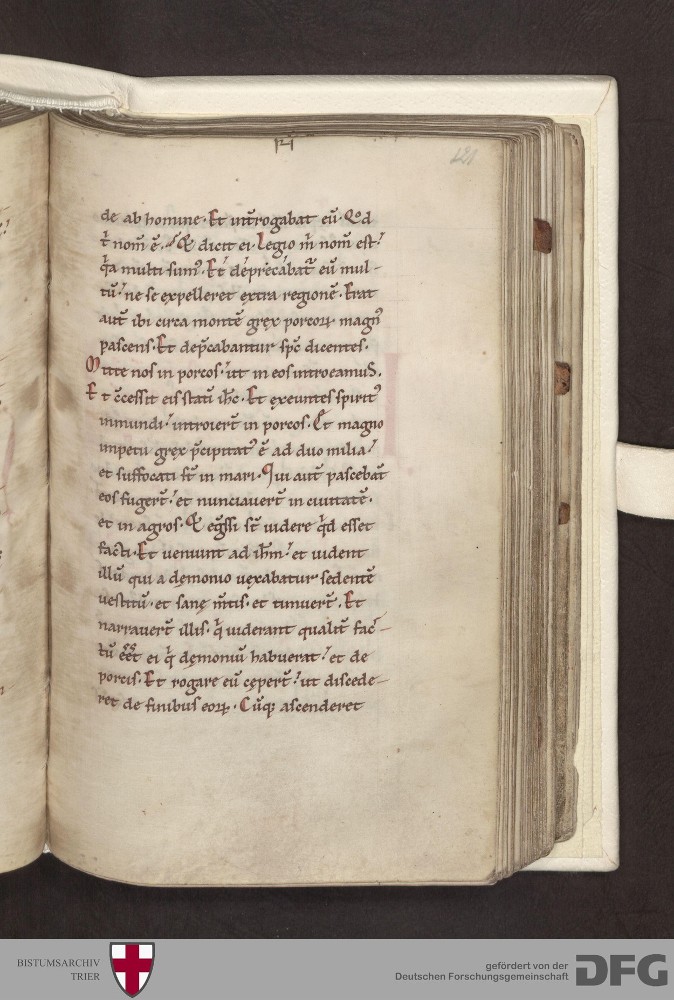 121
de ab homine. Et int̄rogabat eū. Qod
t̄ nom̄ ē. Et dicit ei. Legio m̄ nom̄ est.
q̄a multi sumꝰ. Et dep̄cabat̄ eū mul-
tū. ne se expelleret ęxtra regionē. Erat
aut̄ ibi circa montē gręx porcoꝝ magnꝰ
pascens. Et dep̄cabantur sp̄c dicentes.
Mitte nos in porcos. ut in eos introeamus.
Et c̄cessit eis statī ih̄c. Et ęxeuntes spiritꝰ
inmundi. introiert̄ in porcos. Et magno
impetu gręx p̄cipitatꝰ ē ad duo milia.
et suffocati st̄ in mari. Qui aut̄ pascebāt
eos fugert̄. et nunciauert̄ in ciuitatē.
et in agros. Et eg̃ssi st̄ uidere q̄d esset
facti. Et ueniunt ad ih̄m. et uident
illū qui a dęmonio uęxabatur sedentē
uestitū. et sanę m̄tis. et timuert̄. Et
narrauert̄ illis. q̄ uiderant qualit̄ fac-
tū eēt ei q̄ dęmoniū habuerat. et de
porcis. Et rogare eū cępert̄. ut discede-
ret de finibus eoꝝ. Cūqꝫ ascenderet
BISTUMSARCHIV
TRIER
gefördert von der
Deutschen Forschungsgemeinschaft
DFG